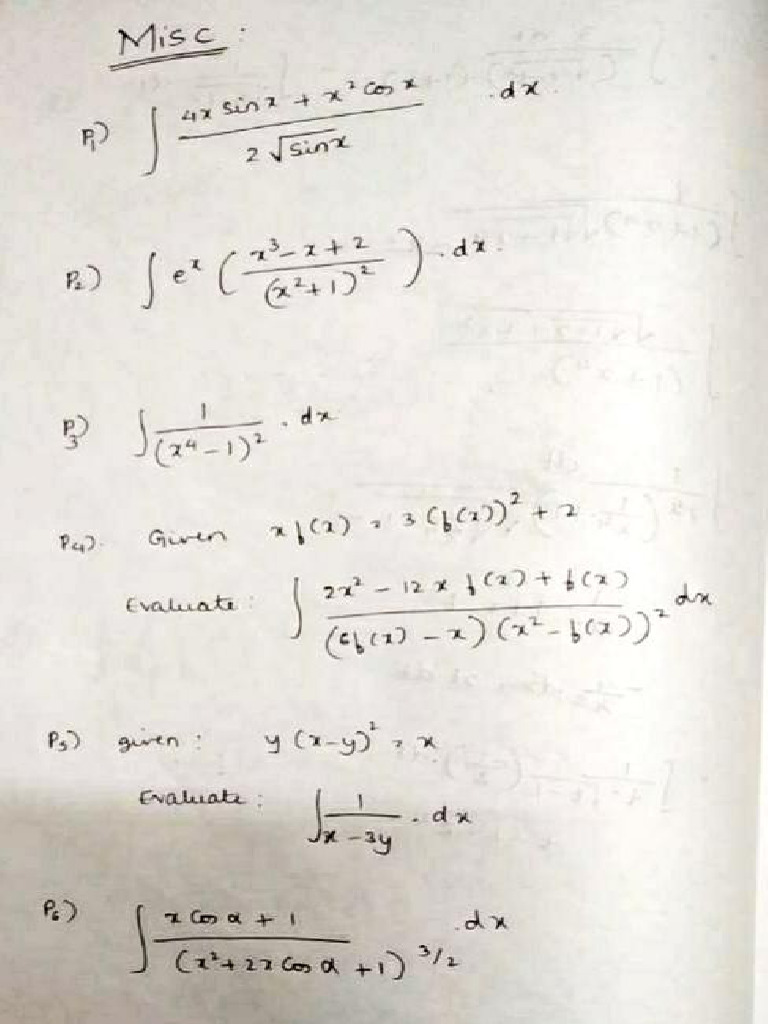 Misc :
P1) ∫ (4x sin x + x² cos x) / (2 √sinx) .dx.
P2) ∫ eˣ ( (x³ - x + 2) / (x² + 1)² ) .dx.
P3) ∫ 1 / (x⁴ - 1)² . dx
P4). Given x f(x) = 3 (f(x))² + 2
Evaluate : ∫ (2x² - 12 x f(x) + f(x)) / ((6f(x) - x) (x² - f(x))²) dx
P5) given : y (x-y)² = x
Evaluate : ∫ 1 / (x - 3y) . dx
P6) ∫ (x Cos α + 1) / (x² + 2x Cos α + 1)^3/2 .dx